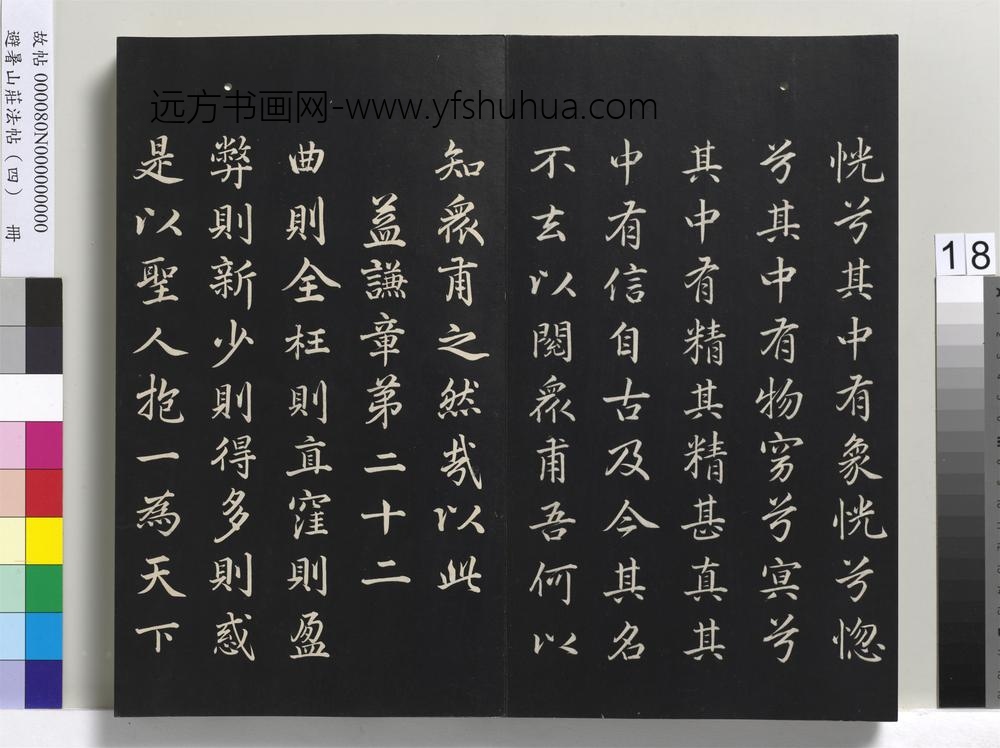 恍兮其中有象恍兮惚
兮其中有物窈兮冥兮
其中有精其精甚真其
中有信自古及今其名
不去以閱衆甫吾何以
知衆甫之然哉以此
益謙章第二十二
曲則全枉則直窪則盈
弊則新少則得多則惑
是以聖人抱一為天下
远方书画网-www.yfshuhua.com
故帖 000080N000000000
避暑山莊法帖（四） 冊
18